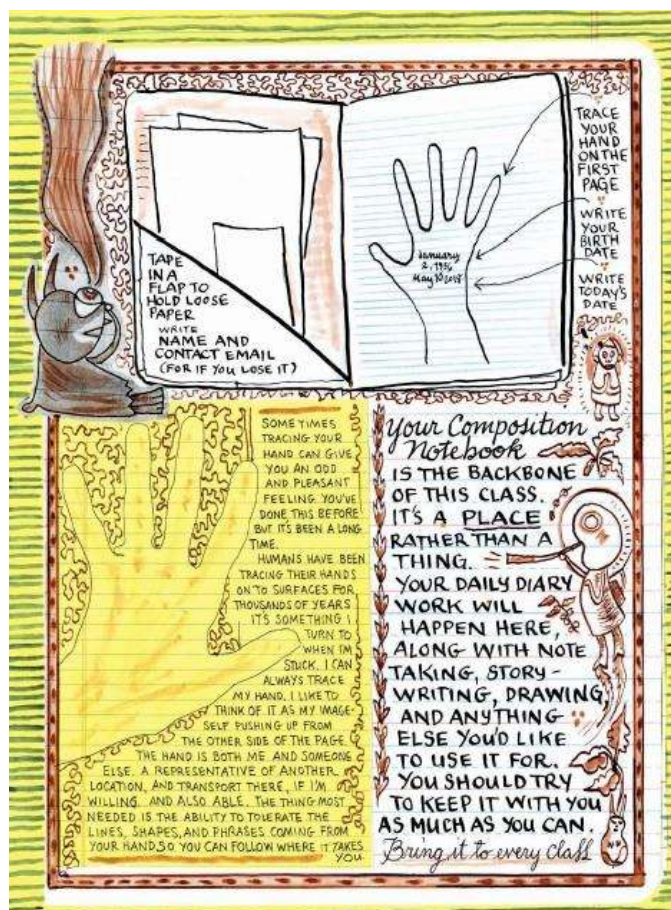 TAPE
IN A
FLAP TO
HOLD LOOSE
PAPER
WRITE
NAME AND
CONTACT EMAIL
(FOR IF YOU LOSE IT)
January
2, 1956
May 10 2018
TRACE
YOUR
HAND
ON THE
FIRST
PAGE
WRITE
YOUR
BIRTH
DATE
WRITE
TODAY'S
DATE
SOMETIMES
TRACING YOUR
HAND CAN GIVE
YOU AN ODD
AND PLEASANT
FEELING YOU'VE
DONE THIS BEFORE
BUT IT'S BEEN A LONG
TIME.
HUMANS HAVE BEEN
TRACING THEIR HANDS
ON TO SURFACES FOR
THOUSANDS OF YEARS
IT'S SOMETHING I
TURN TO
WHEN I'M
STUCK. I CAN
ALWAYS TRACE
MY HAND. I LIKE TO
THINK OF IT AS MY IMAGE-
SELF PUSHING UP FROM
THE OTHER SIDE OF THE PAGE.
THE HAND IS BOTH ME AND SOMEONE
ELSE. A REPRESENTATIVE OF ANOTHER
LOCATION, AND TRANSPORT THERE, IF I'M
WILLING. AND ALSO ABLE. THE THING MOST
NEEDED IS THE ABILITY TO TOLERATE THE
LINES, SHAPES, AND PHRASES COMING FROM
YOUR HAND SO YOU CAN FOLLOW WHERE IT TAKES
YOU.
Your Composition
Notebook
IS THE BACKBONE
OF THIS CLASS.
IT'S A PLACE
RATHER THAN A
THING.
YOUR DAILY DIARY
WORK WILL
HAPPEN HERE,
ALONG WITH NOTE
TAKING, STORY-
WRITING, DRAWING,
AND ANYTHING
ELSE YOU'D LIKE
TO USE IT FOR.
YOU SHOULD TRY
TO KEEP IT WITH YOU
AS MUCH AS YOU CAN.
Bring it to every class